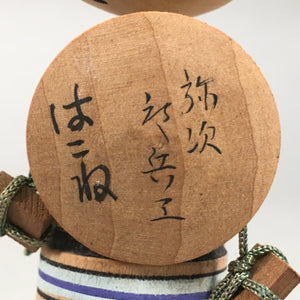 弥次
郎兵ヱ
はこね